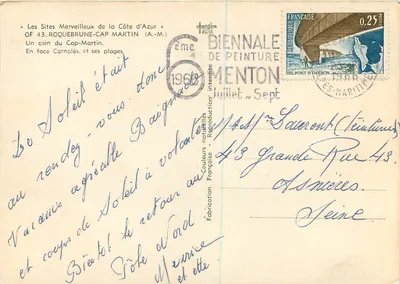 « Les Sites Merveilleux de la Côte d'Azur »
OF 43. ROQUEBRUNE-CAP MARTIN (A.-M.)
Un coin du Cap-Martin.
En face Carnolès et ses plages
6ème
1966
BIENNALE
DE PEINTURE
MENTON
Juillet - Sept
REPUBLIQUE FRANCAISE
0,25
POSTES
PONT D'OLERON
Couleurs naturelles
Fabrication Française - Reproduction interdite
Le Soleil était
au rendez-vous donc
Vacances agréable Baignades
et coups de Soleil à volonté
Bientôt le retour au
Pôle Nord
Maurice
et
Mr & Mme Laurent (Peinture)
43 Grande Rue 43
Asnières
Seine